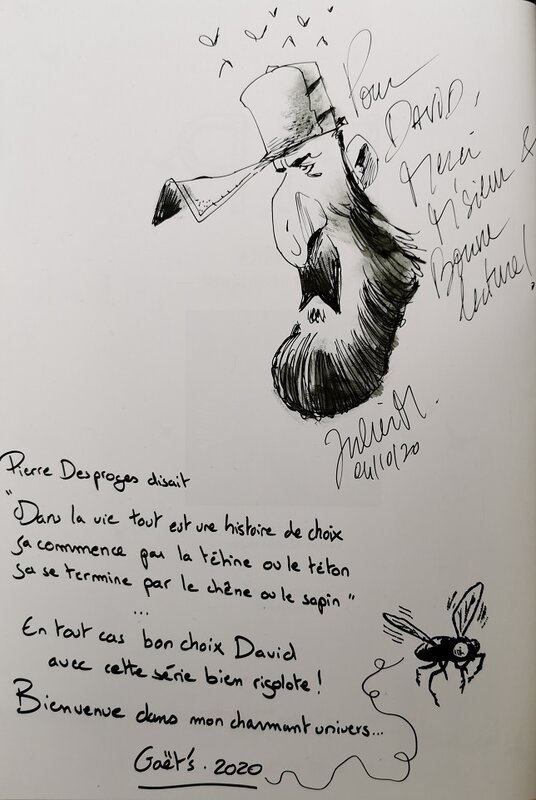 Pour
DAVID,
Merci
M'sieur &
Bonne
lecture !
Julien M.
04/10/20
Pierre Desproges disait
"Dans la vie tout est une histoire de choix
ça commence par la tétine ou le téton
ça se termine par le chêne ou le sapin"
...
En tout cas bon choix David
avec cette série bien rigolote !
Bienvenue dans mon charmant univers...
Gaët's . 2020